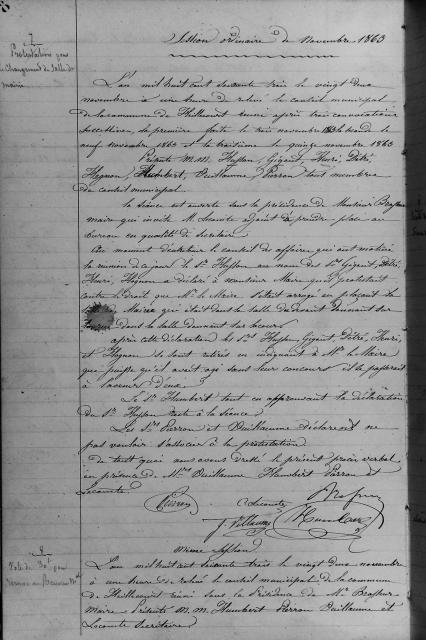 Session ordinaire de Novembre 1863
7
Protestation pour
le Changement de Salle de
mairie
L'an mil huit cent soixante trois le vingt deux
novembre à une heure de relevé le conseil municipal
de la commune de réuni après trois convocations
successives, la première faite le trois novembre la seconde le
neuf novembre 1863 et la troisième le quinze novembre 1863
Présents M.M. Husson, Gigant, Henri, Pétré,
Hognon, Humbert, Vuillaume, Pierron tous membres
du conseil municipal.
La séance est ouverte sous la présidence de Monsieur
maire qui invite M. Lecomte adjoint à prendre place au
bureau en qualité de secrétaire.
Au moment d'entretenir le conseil des affaires qui ont motivé
la réunion de ce jour le Sr Husson au nom des Srs Gigant, Pétré,
Henri, Hognon a déclaré à monsieur le Maire qu'il protestait
contre le droit que Mr le Maire s'était arrogé en plaçant la
Mairie qui était dans la salle de devant donnant sur
dans la salle donnant sur la cour
après cette déclaration les Srs Husson, Gigant, Pétré, Henri,
et Hognon se sont retirés en enjoignant à Mr le Maire
que puisqu'il avait agi sans leur concours il se passerait
à l'avenir d'eux.
Le Sr Humbert tout en approuvant la déclaration
du Sr Husson reste à la séance.
Les Srs Pierron et Vuillaume déclarent ne
pas vouloir s'associer à la protestation.
De tout quoi nous avons dressé le présent procès verbal
en présence de Mrs Vuillaume Humbert Pierron et
Lecomte.
Pierron Lecomte
J. Villaume Humbert
8
Vote de 30f pour
Même session
L'an mil huit cent soixante trois le vingt deux novembre
à une heure de relevé le conseil municipal de la commune
de réuni sous la Présidence de Mr
Maire Présents M.M. Humbert Pierron Vuillaume et
Lecomte Secrétaire